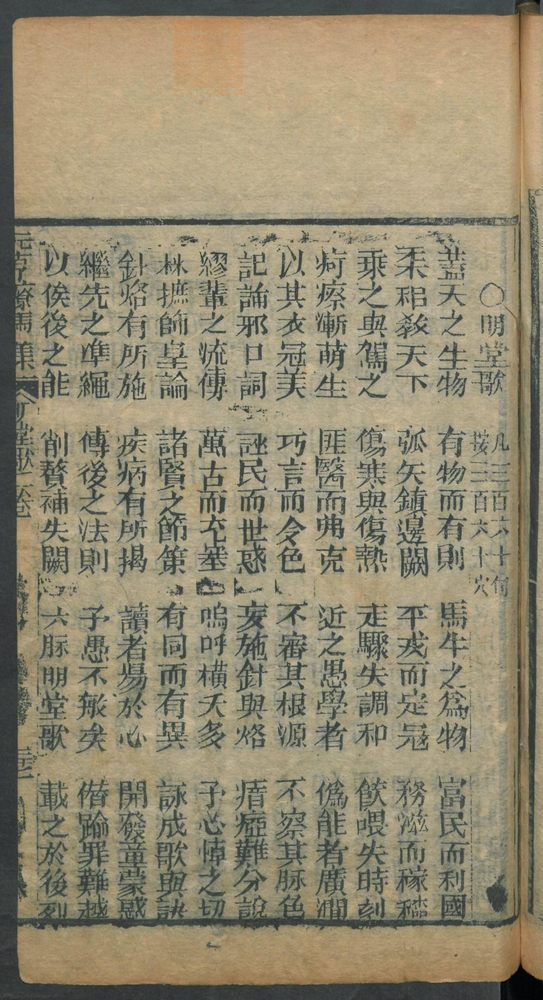 〇明堂歌 凡三百六十句 按三百六十穴
蓋天之生物 有物而有則 馬牛之為物 富民而利國
柔耜敎天下 弧矢鎮邊闕 平戎而定冦 務滋而稼穡
乘之與駕之 傷寒與傷熱 走驟失調和 飲喂失時刻
疴瘵漸萌生 匪醫而弗克 近之愚學者 偽能者廣濶
以其衣冠美 巧言而令色 不審其根源 不察其脉色
記論邪口詞 誣民而世惑 妄施針與烙 瘖瘂難分說
繆輩之流傳 萬古而充塞 嗚呼橫夭多 予心悼之切
採摭師皇論 諸賢之節策 有同而有異 詠成歌與訣
針烙有所施 疾病有所揭 讀者昜於心 開發童蒙惑
繼先之凖繩 傳後之法則 予愚不敏矣 僭踰罪難越
以俟後之能 削贅補失闕 六脉明堂歌 載之於後列
元亨療馬集 明堂歌 卷